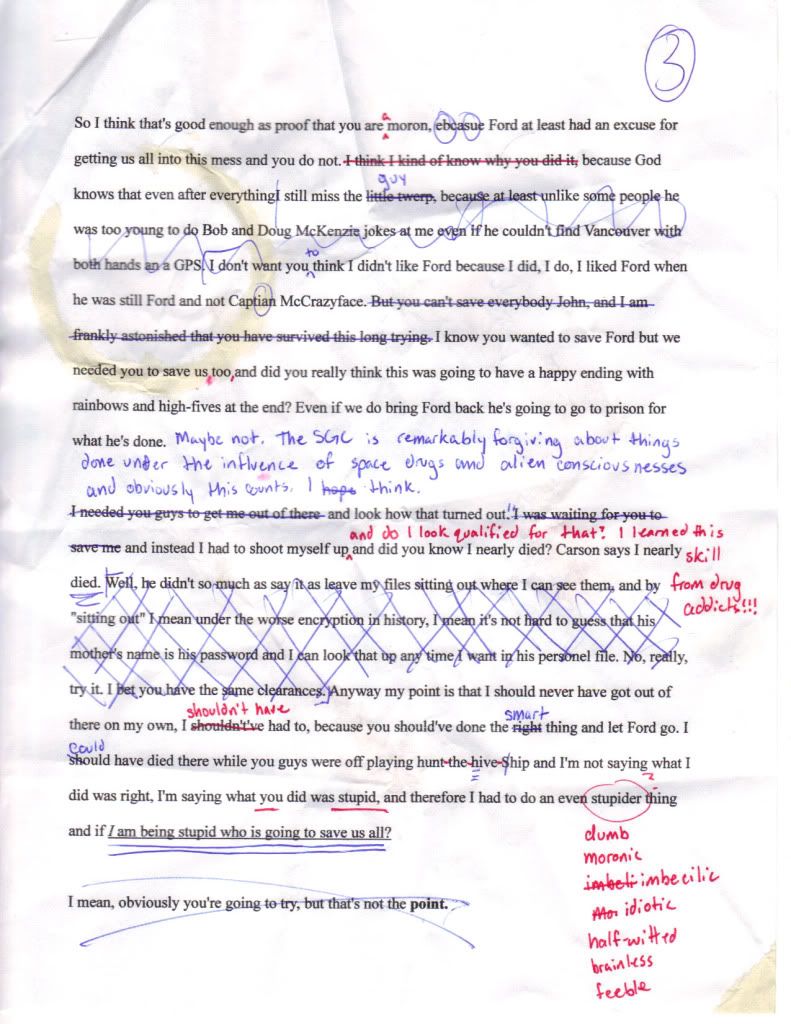 3
So I think that's good enough as proof that you are a moron, ebcasue Ford at least had an excuse for
getting us all into this mess and you do not. I think I kind of know why you did it, because God
guy
knows that even after everythingI still miss the little twerp, because at least unlike some people he
was too young to do Bob and Doug McKenzie jokes at me even if he couldn't find Vancouver with
both hands an a GPS. I don't want you to think I didn't like Ford because I did, I do, I liked Ford when
he was still Ford and not Captian McCrazyface. But you can't save everybody John, and I am
frankly astonished that you have survived this long trying. I know you wanted to save Ford but we
needed you to save us too, and did you really think this was going to have a happy ending with
rainbows and high-fives at the end? Even if we do bring Ford back he's going to go to prison for
what he's done. Maybe not. The SGC is remarkably forgiving about things
done under the influence of space drugs and alien consciousnesses
and obviously this counts. I hope think.
I needed you guys to get me out of there and look how that turned out. I was waiting for you to
and do I look qualified for that? I learned this
save me and instead I had to shoot myself up and did you know I nearly died? Carson says I nearly skill
died. Well, he didn't so much as say it as leave my files sitting out where I can see them, and by from drug
addicts!!!
"sitting out" I mean under the worse encryption in history, I mean it's not hard to guess that his
mother's name is his password and I can look that up any time I want in his personel file. No, really,
try it. I bet you have the same clearances. Anyway my point is that I should never have got out of
shouldn't have smart
there on my own, I shouldn't've had to, because you should've done the right thing and let Ford go. I
could
should have died there while you guys were off playing hunt-the-hive-ship and I'm not saying what I
did was right, I'm saying what you did was stupid, and therefore I had to do an even stupider thing
?
and if I am being stupid who is going to save us all?
dumb
moronic
imbeli imbecilic
Mor idiotic
half-witted
brainless
feeble
I mean, obviously you're going to try, but that's not the point.